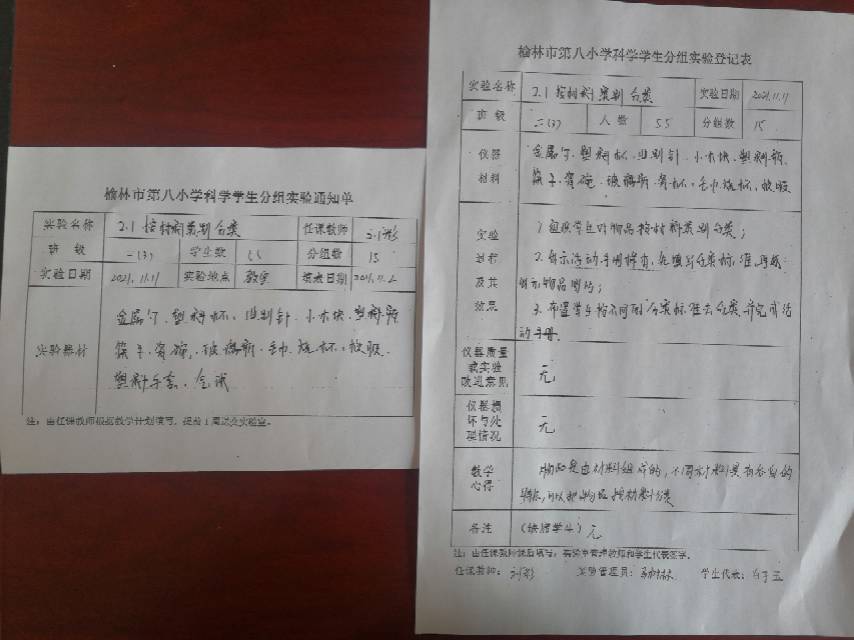 榆林市第八小学科学学生分组实验通知单
实验名称 2.1 按材料类别分类 任课教师
班级 二(3) 学生数 55 分组数 15
实验日期 2021.11.11 实验地点 教室 填表日期 2021.11.2
实验器材
金属勺、塑料杯、回别针、小木块、塑料瓶
筷子、瓷碗、玻璃瓶、毛巾、烧杯、放眼
塑料手套、气球
注:由任课教师根据教学计划填写,提前1周送交实验室。
榆林市第八小学科学学生分组实验登记表
实验名称 2.1 按材料类别分类 实验日期 2021.11.11
班级 二(3) 人数 55 分组数 15
仪器材料
金属勺、塑料杯、回别针、小木块、塑料瓶、
筷子、瓷碗、玻璃瓶、纸杯、毛巾、烧杯、放眼
实验过程及其效果
1. 组织学生对物品按材料类别分类;
2. 展示活动手册内容,
展示物品图片;
3. 布置学生按不同的分类标准去分类,并完成活
动手册.
仪器质量或实验改进意见 无
仪器损坏与处理情况 无
教学心得
物品是由材料组成的,不同材料具有各自的
特点,可以把物品按材料分类
备注 (缺席学生) 无
注:由任课教师课后填写,实验室管理教师和学生代表签字。
任课教师: 实验管理员: 学生代表: